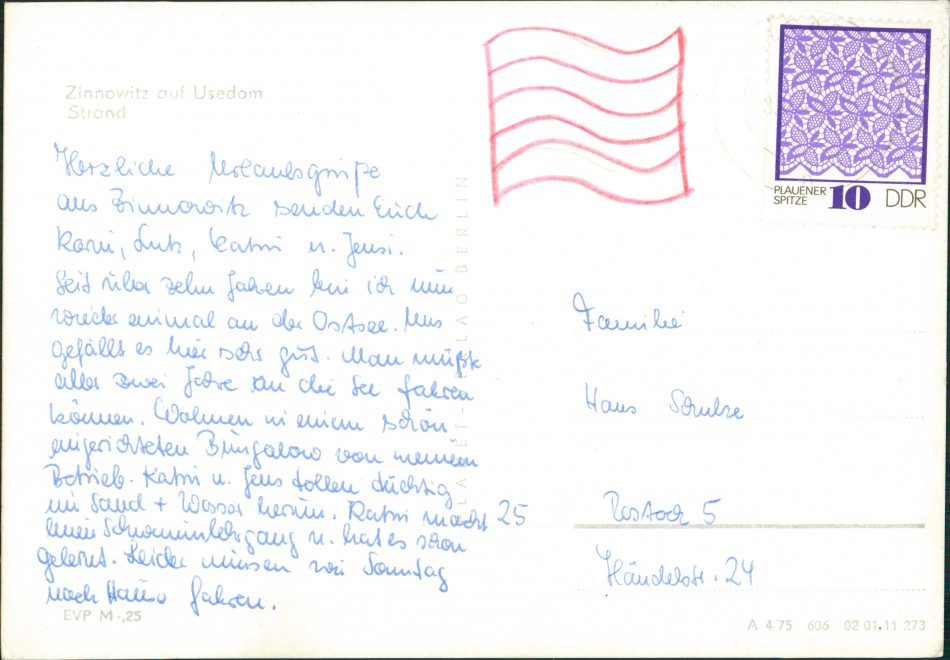 Zinnowitz auf Usedom
Strand
Herzliche Urlaubsgrüße
aus Zinnowitz senden Euch
Karri, Lutz, Katrin u. Jensi.
Seit über zehn Jahren bin ich nun
wieder einmal an der Ostsee. Uns
gefällt es hier sehr gut. Man müßte
aller zwei Jahre an die See fahren
können. Wohnen in einem schön
eingerichteten Bungalow von meinem
Betrieb. Katrin u. Jens tollen tüchtig
im Sand + Wasser herum. Katrin macht
einen Schwimmlehrgang u. hat es schon
gelernt. Leider müssen wir Sonntag
nach Hause fahren.
EVP M -,25
BERLIN
PLAUENER
SPITZE
10 DDR
Familie
Hans Schulze
25 Rostock 5
Händelstr. 24
A 4/75 606 02 01.11 273